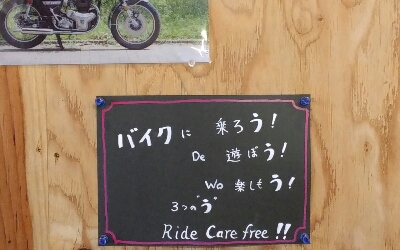 バイクに 乗ろう!
De 遊ぼう!
Wo 楽しもう!
3つの"う"
Ride Care free !!